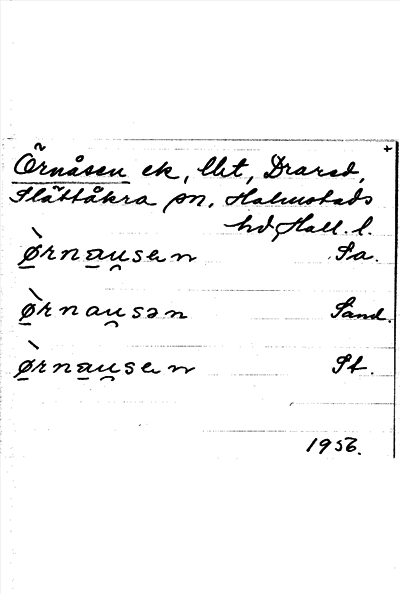 +
Örnåsen ek, llt, Drared,
Slättåkra sn, Halmstads
hd, Hall. l.
ø̲̀rna̲u̯sen Sa.
ø̲̀rnau̯sən Sand.
ø̲̀rna̲u̯sen St.
1956.